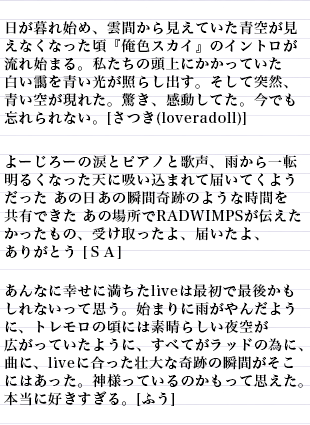 日が暮れ始め、雲間から見えていた青空が見
えなくなった頃『俺色スカイ』のイントロが
流れ始まる。私たちの頭上にかかっていた
白い靄を青い光が照らし出す。そして突然、
青い空が現れた。驚き、感動してた。今でも
忘れられない。[さつき(loveradoll)]
よーじろーの涙とピアノと歌声、雨から一転
明るくなった天に吸い込まれて届いてくよう
だった あの日あの瞬間奇跡のような時間を
共有できた あの場所でRADWIMPSが伝えた
かったもの、受け取ったよ、届いたよ、
ありがとう [ＳＡ]
あんなに幸せに満ちたliveは最初で最後かも
しれないって思う。始まりに雨がやんだよう
に、トレモロの頃には素晴らしい夜空が
広がっていたように、すべてがラッドの為に、
曲に、liveに合った壮大な奇跡の瞬間がそこ
にはあった。神様っているのかもって思えた。
本当に好きすぎる。[ふう]